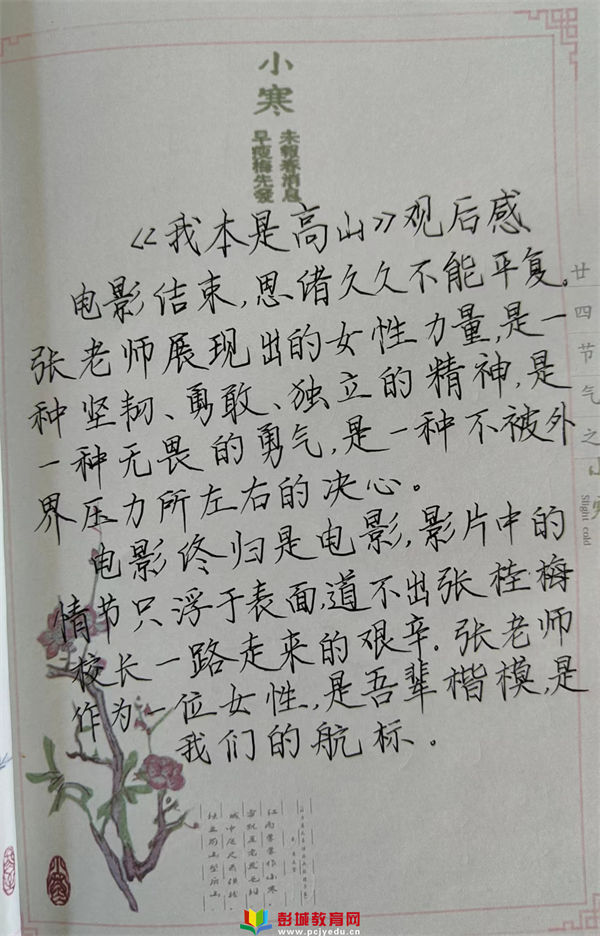 小寒
未报春消息
早瘦梅先发
《我本是高山》观后感
电影结束,思绪久久不能平复。
张老师展现出的女性力量,是一
种坚韧、勇敢、独立的精神,是
一种无畏的勇气,是一种不被外
界压力所左右的决心。
电影终归是电影,影片中的
情节只浮于表面,道不出张桂梅
校长一路走来的艰辛。张老师
作为一位女性,是吾辈楷模,是
我们的航标。
廿四节气之
小寒
Slight cold
小寒
彭城教育网
www.pcjyedu.cn